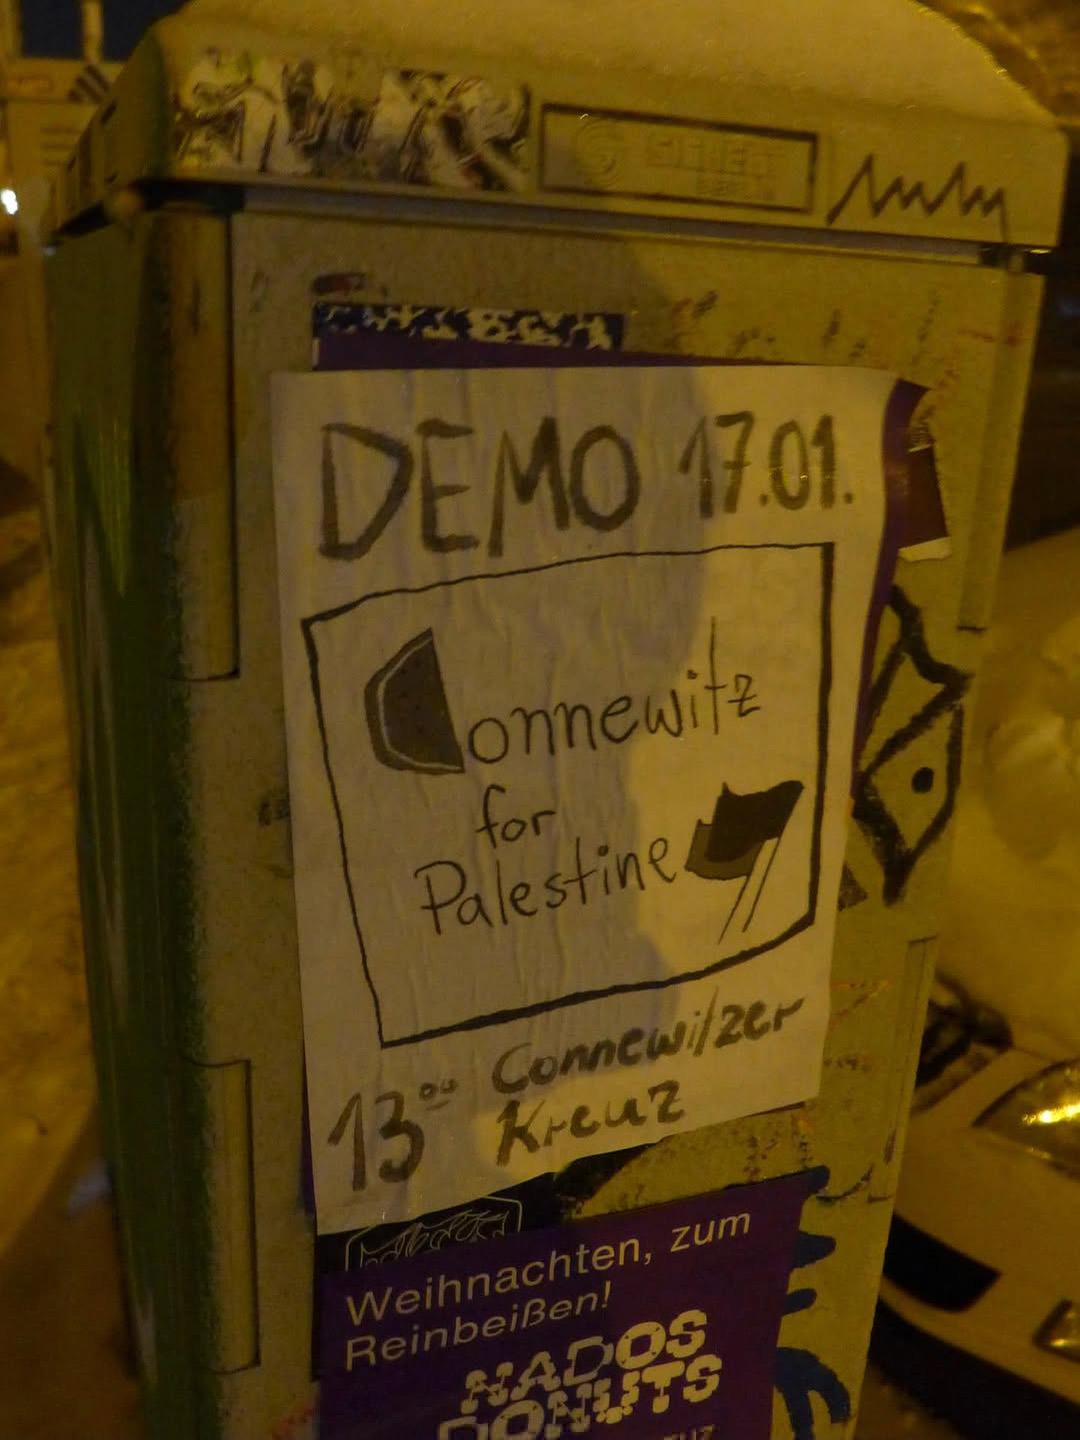 SICHERT
BERLIN
DEMO 17.01.
Connewitz
for
Palestine
13⁰⁰ Connewitzer
Kreuz
Weihnachten, zum
Reinbeißen!
NADOS
DONUTS